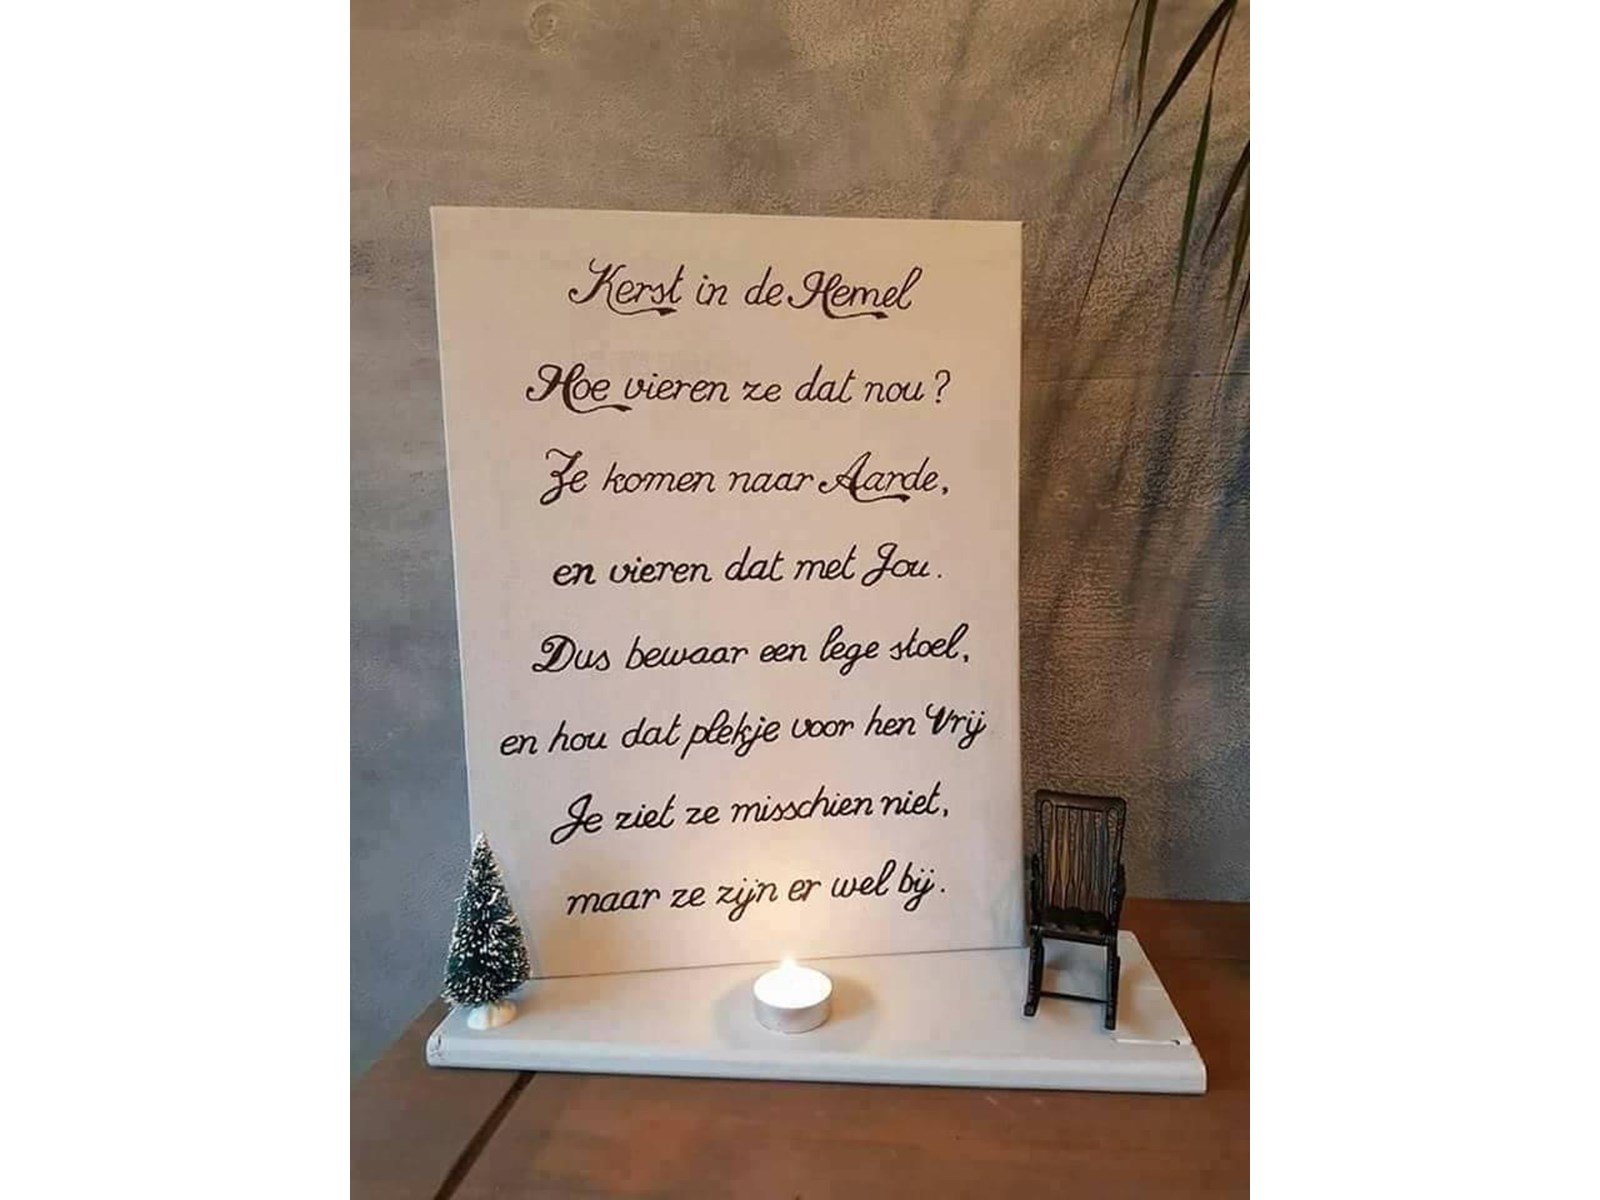 Kerst in de Hemel
Hoe vieren ze dat nou?
Ze komen naar Aarde,
en vieren dat met Jou.
Dus bewaar een lege stoel,
en hou dat plekje voor hen Vrij
Je ziet ze misschien niet,
maar ze zijn er wel bij.